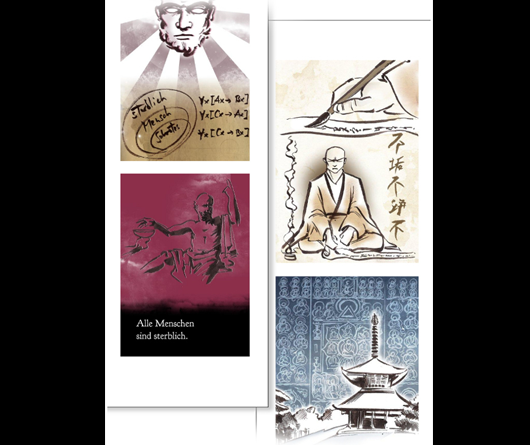 sterblich
Mensch
Sokrates
∀x[Ax→Bx]
∀x[Cx→Ax]
∀x[Cx→Bx]
Alle Menschen
sind sterblich.
不垢不淨不